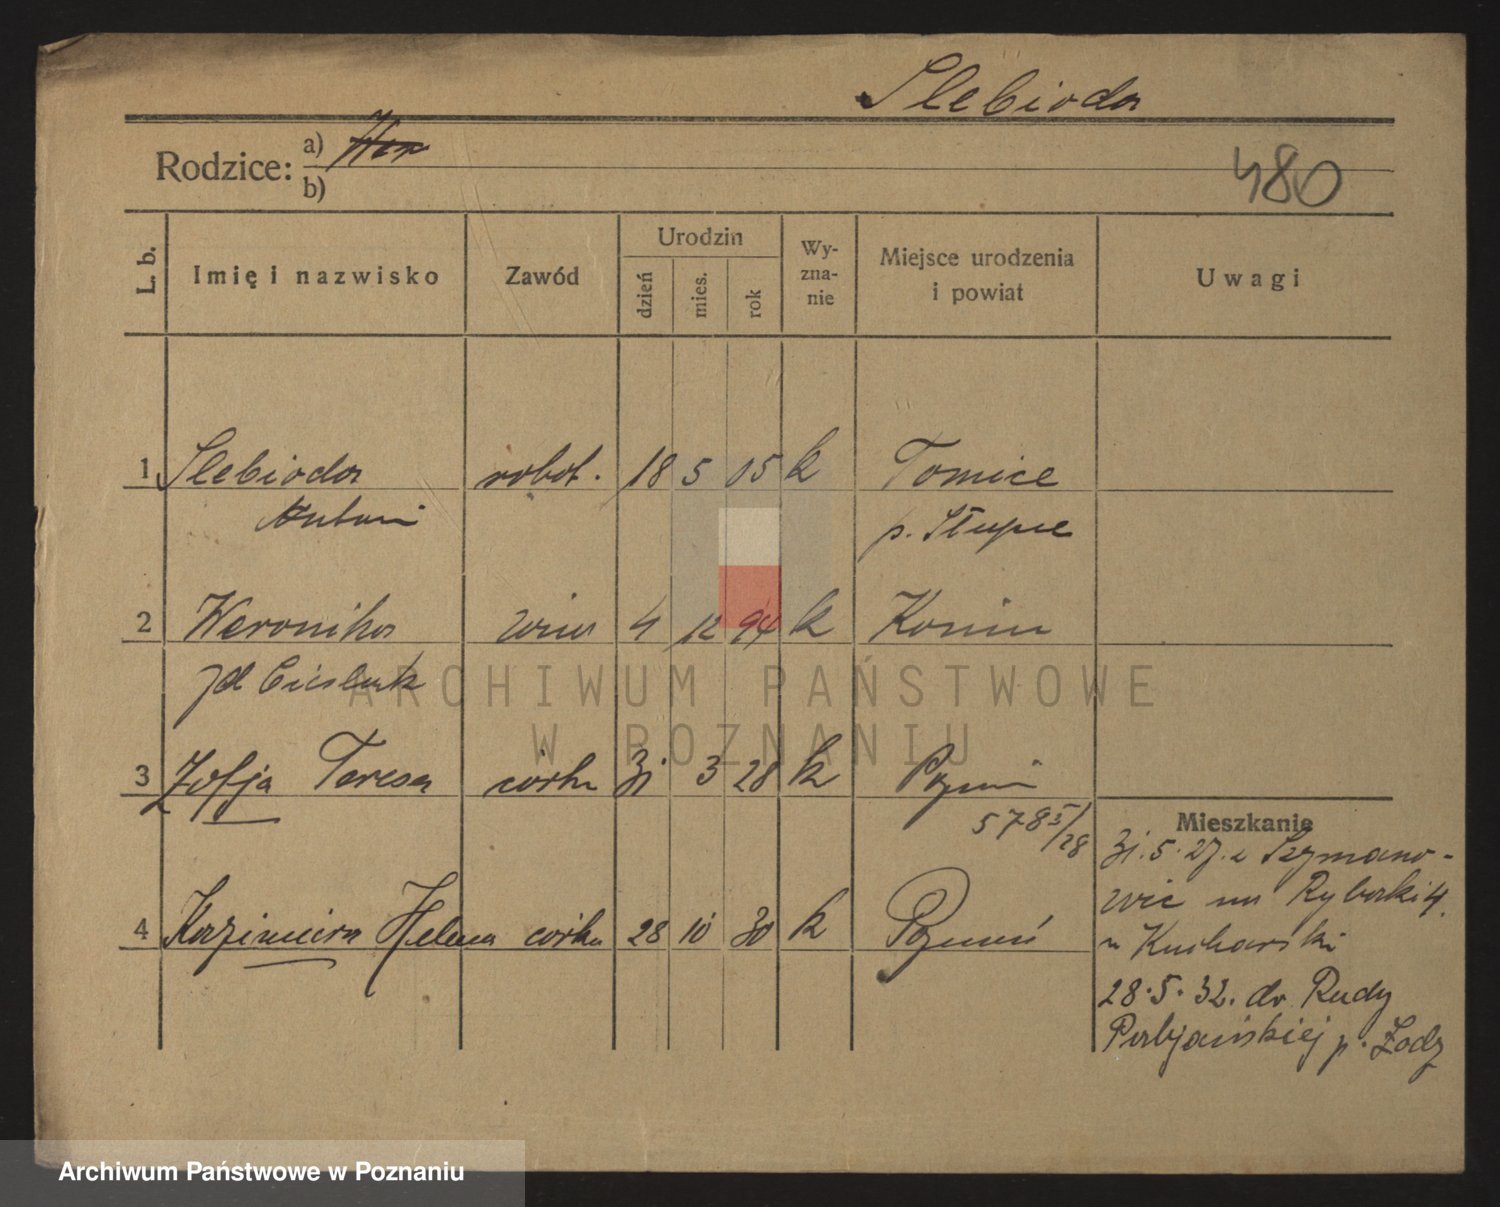 Slebioda
Rodzice: a)
b)
480
L. b. Imię i nazwisko Zawód Urodzin dzień mies. rok Wy-zna-nie Miejsce urodzenia i powiat Uwagi
1 Slebioda robot. 18 5 05 k Tomice
Antoni p. Słupce
2 Weronika żona 4 12 94 k Konin
zd Cieślak
3 Zofja Teresa córka 31 3 28 k Poznań
578 5/28
4 Kazimiera Helena córka 28 10 30 k Poznań
Mieszkanie
31.5.27. z Szymano-
wic na Rybaki 4.
u Kucharski
28.5.32. do Rudy
Pabjańskiej p. Łodz
ARCHIWUM PAŃSTWOWE
W POZNANIU
Archiwum Państwowe w Poznaniu